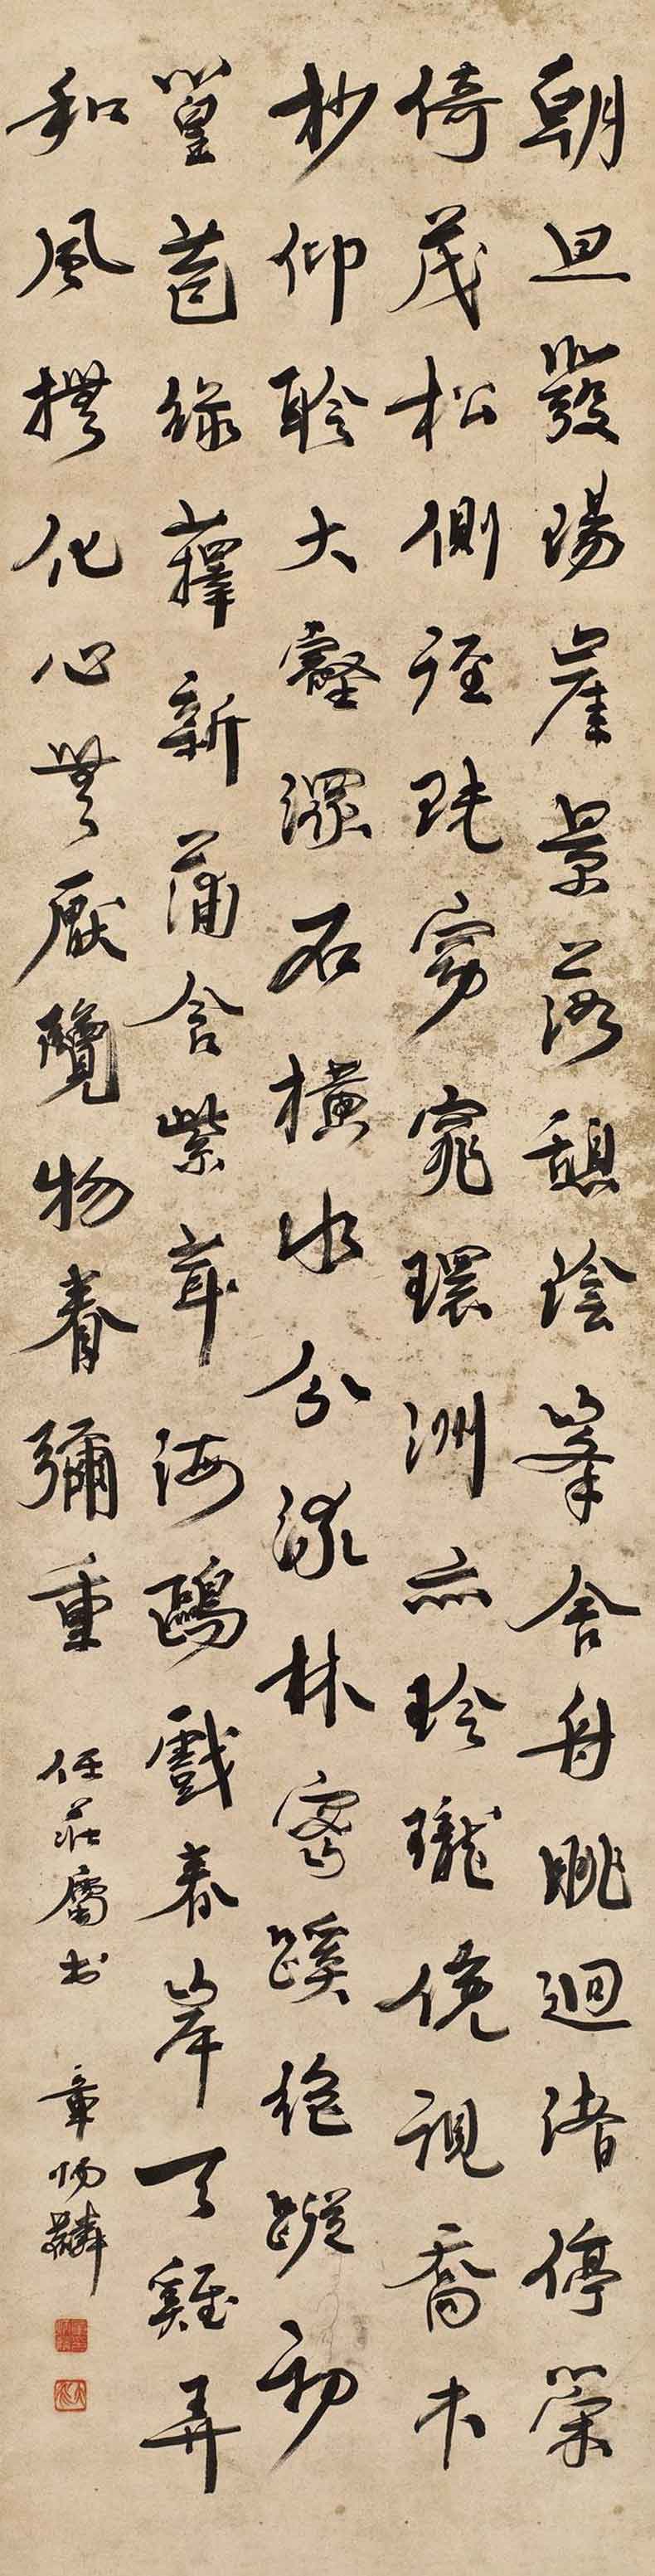 朝旦發陽崖景落憩陰峯舍舟眺迴渚停策
倚茂松側逕既窈窕環洲亦玲瓏俛視喬木
杪仰聆大壑灇石橫水分流林密蹊絕蹤初
篁苞綠籜新蒲含紫茸海鷗戲春岸天雞弄
和風撫化心無厭覽物眷彌重 任莊屬書 章炳麟